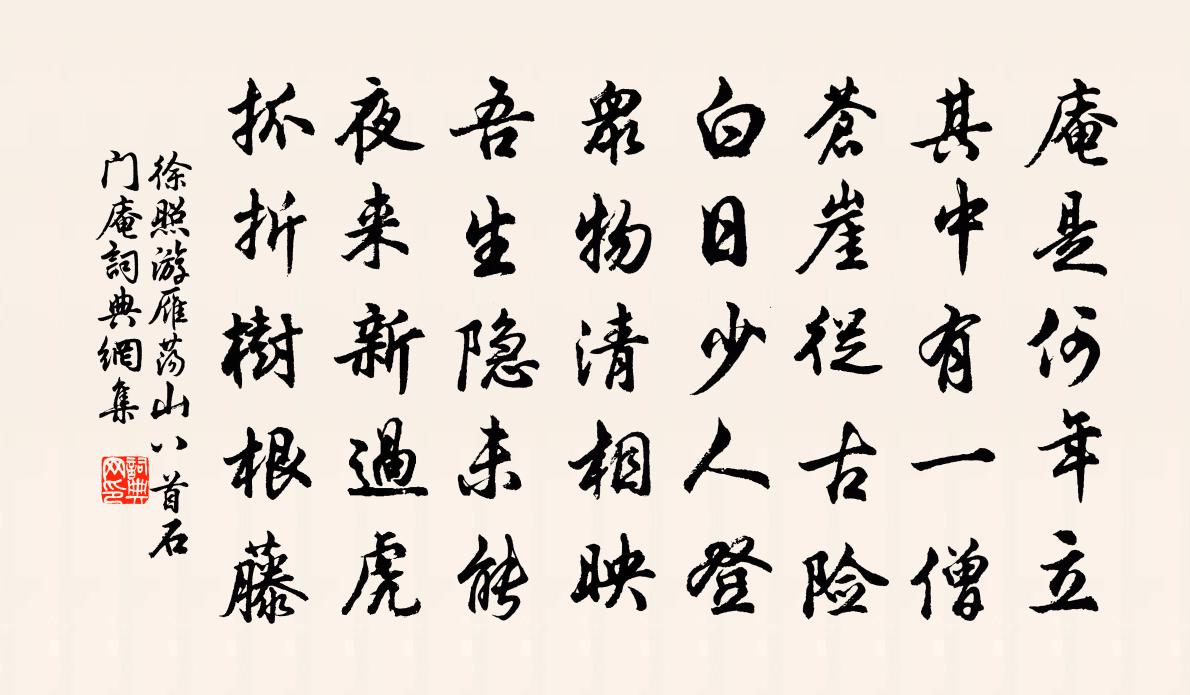 庵是何年立
其中有一僧
蒼崖從古险
白日少人登
衆物清相映
吾生隐未能
夜来新過虎
抓折樹根藤
徐照游雁荡山八首石
门庵詞典網集
詞典
网印